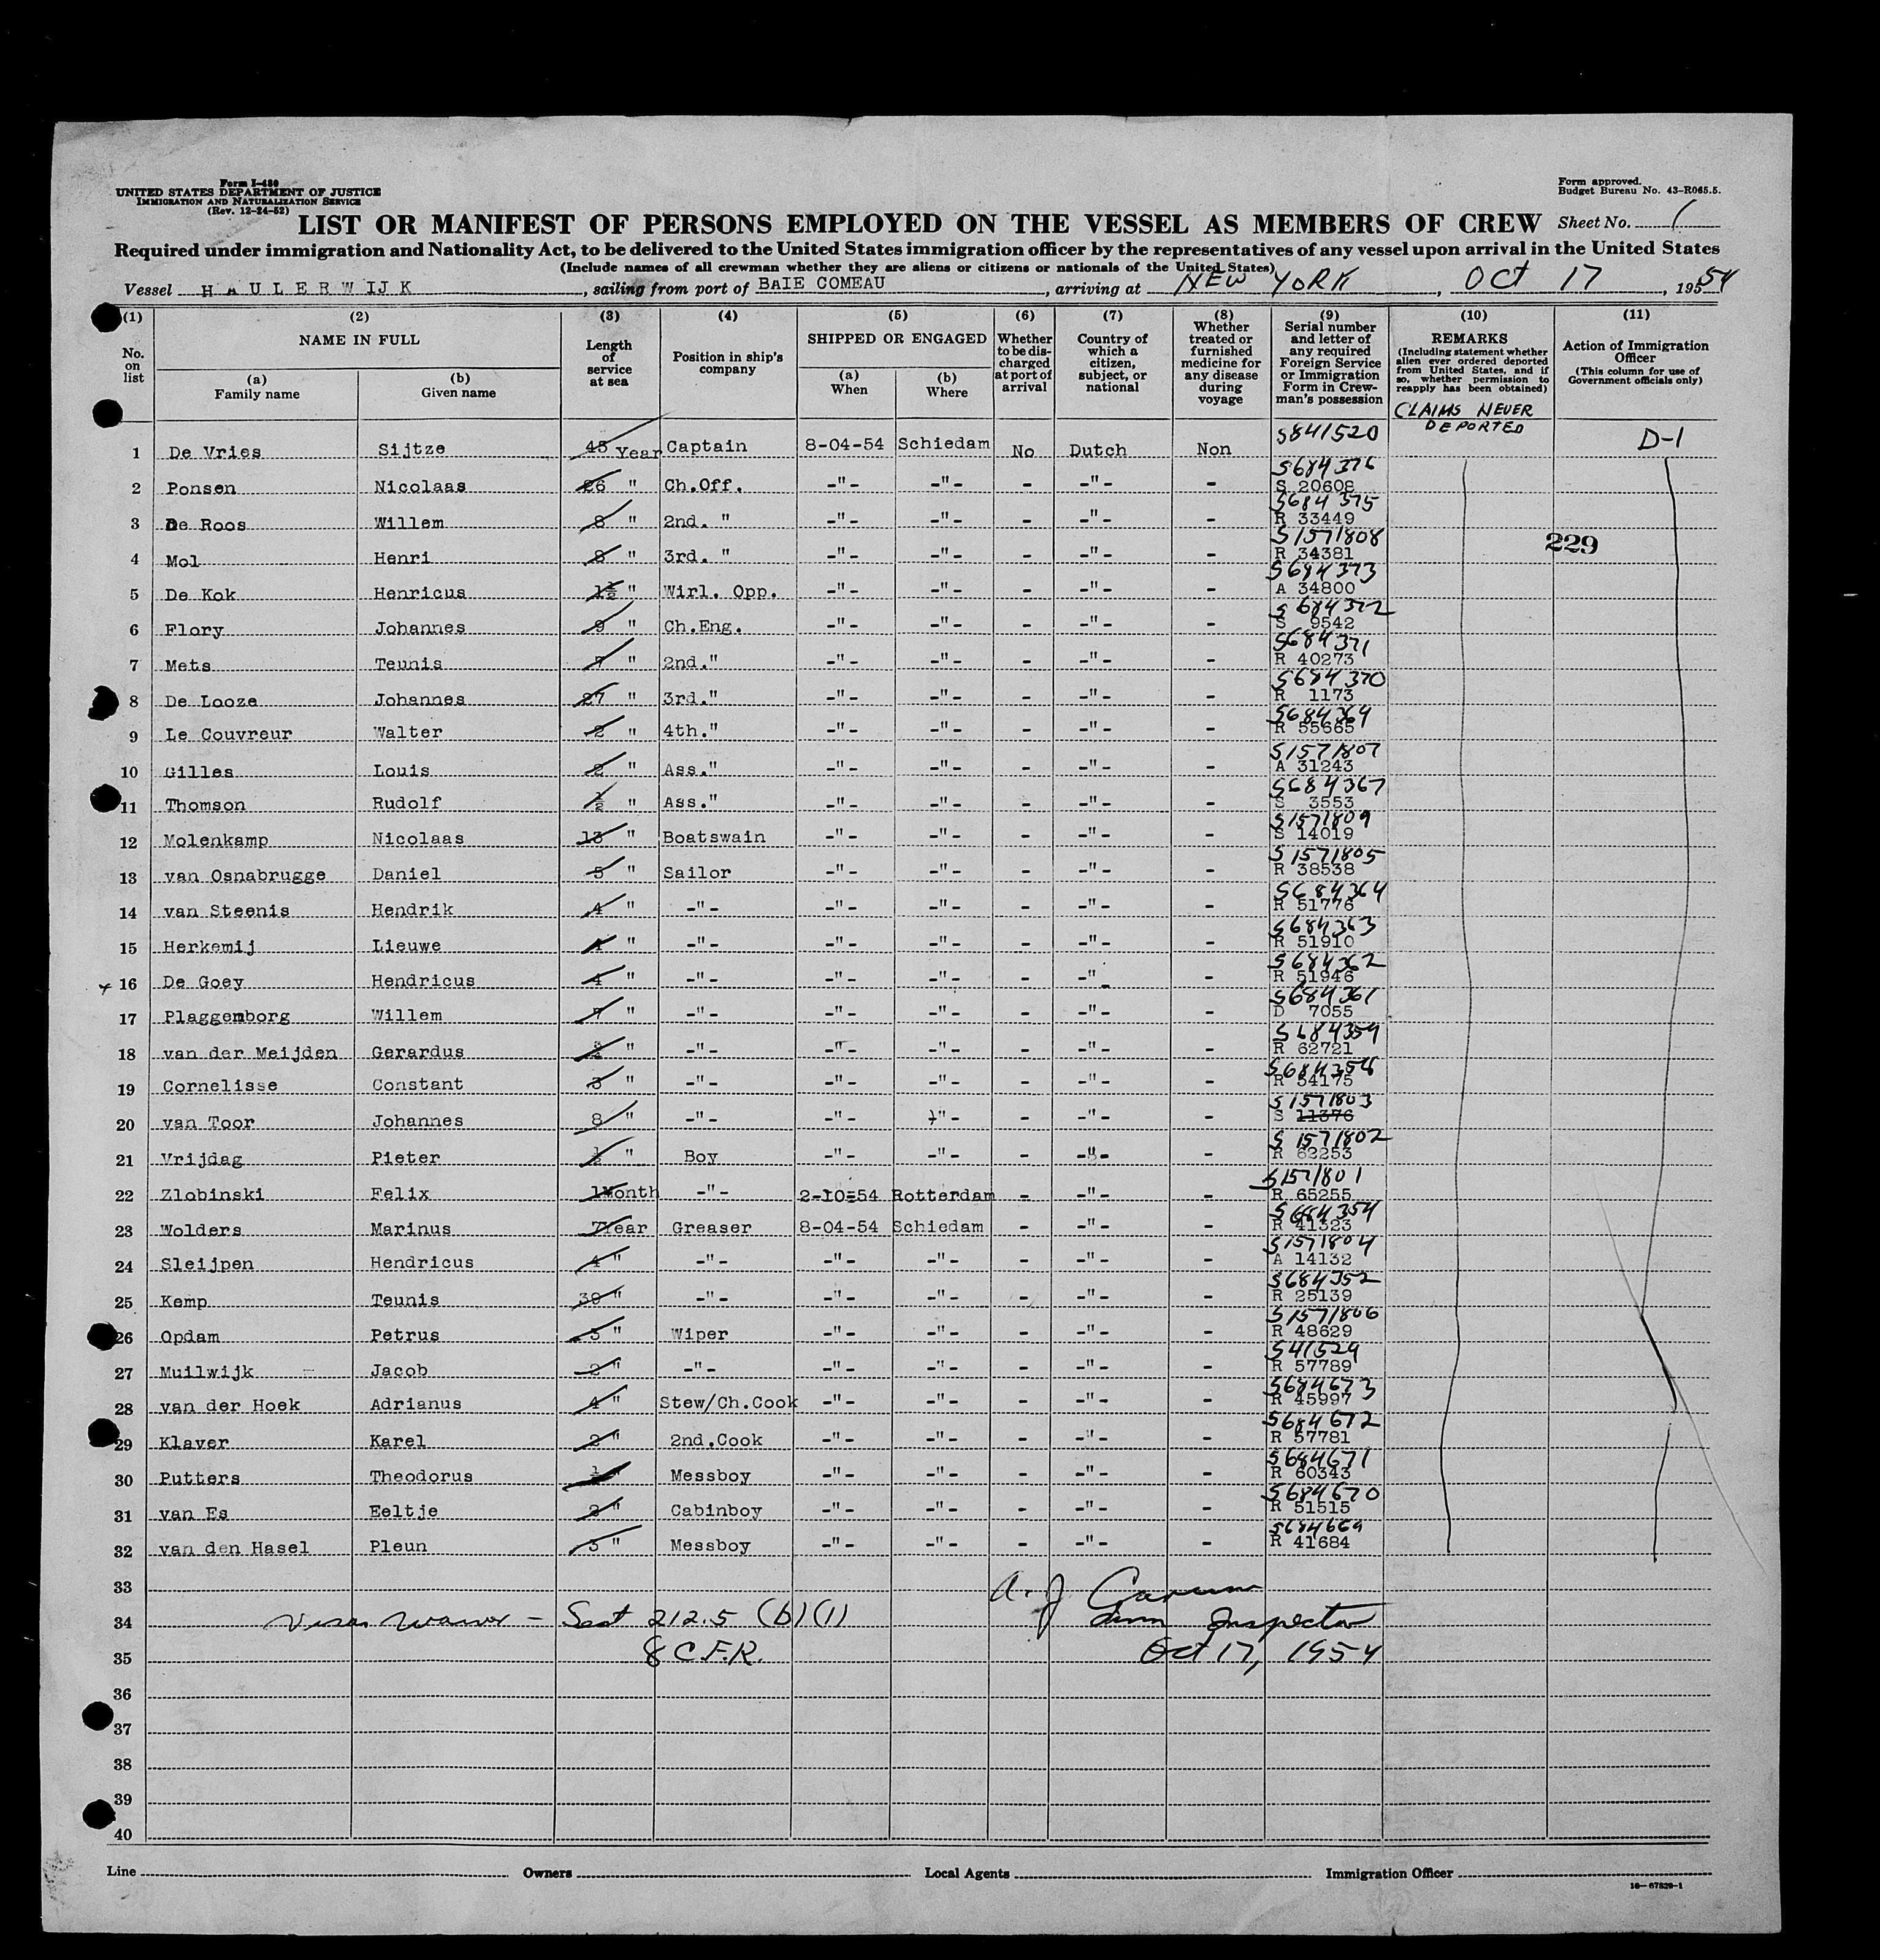 Form I-480
UNITED STATES DEPARTMENT OF JUSTICE
IMMIGRATION AND NATURALIZATION SERVICE
(Rev. 12-24-52)
Form approved.
Budget Bureau No. 43-R065.5.
LIST OR MANIFEST OF PERSONS EMPLOYED ON THE VESSEL AS MEMBERS OF CREW Sheet No. 1
Required under immigration and Nationality Act, to be delivered to the United States immigration officer by the representatives of any vessel upon arrival in the United States
(Include names of all crewman whether they are aliens or citizens or nationals of the United States)
Vessel HAULERWIJK, sailing from port of BAIE COMEAU, arriving at NEW YORK, OCT 17, 1954
(1) (2) (3) (4) (5) (6) (7) (8) (9) (10) (11)
No. on list
NAME IN FULL
(a) Family name
(b) Given name
Length of service at sea
Position in ship's company
SHIPPED OR ENGAGED
(a) When
(b) Where
Whether to be discharged at port of arrival
Country of which a citizen, subject, or national
Whether treated or furnished medicine for any disease during voyage
Serial number and letter of any required Foreign Service or Immigration Form in Crewman's possession
REMARKS
(Including statement whether alien ever ordered deported from United States, and if so, whether permission to reapply has been obtained)
Action of Immigration Officer
(This column for use of Government officials only)
CLAIMS NEVER DEPORTED
1 De Vries Sijtze 45 Year Captain 8-04-54 Schiedam No Dutch Non S841520 D-1
2 Ponsen Nicolaas 26 " Ch.Off. -"- -"- - -"- - S684376 S 20608
3 De Roos Willem 8 " 2nd. " -"- -"- - -"- - S684375 R 33449
229
4 Mol Henri 8 " 3rd. " -"- -"- - -"- - S1571808 R 34381
5 De Kok Henricus 1½ " Wirl. Opp. -"- -"- - -"- - S684373 A 34800
6 Flory Johannes 9 " Ch.Eng. -"- -"- - -"- - S684372 S 9542
7 Mets Teunis 7 " 2nd." -"- -"- - -"- - S684371 R 40273
8 De Looze Johannes 27 " 3rd." -"- -"- - -"- - S684370 R 1173
9 Le Couvreur Walter 2 " 4th." -"- -"- - -"- - S684369 R 55665
10 Gilles Louis 2 " Ass." -"- -"- - -"- - S1571807 A 31243
11 Thomson Rudolf ½ " Ass." -"- -"- - -"- - S684367 S 3553
12 Molenkamp Nicolaas 13 " Boatswain -"- -"- - -"- - S1571809 S 14019
13 van Osnabrugge Daniel 5 " Sailor -"- -"- - -"- - S1571805 R 38538
14 van Steenis Hendrik 4 " -"- -"- -"- - -"- - S684364 R 51776
15 Herkemij Lieuwe 4 " -"- -"- -"- - -"- - S684363 R 51910
16 De Goey Hendricus 4 " -"- -"- -"- - -"- - S684362 R 51946
17 Plaggemborg Willem 7 " -"- -"- -"- - -"- - S684361 D 7055
18 van der Meijden Gerardus " -"- -"- -"- - -"- - S684359 R 62721
19 Cornelisse Constant 3 " -"- -"- -"- - -"- - S684358 R 54175
20 van Toor Johannes 8 " -"- -"- -"- - -"- - S1571803 S 11376
21 Vrijdag Pieter ½ " Boy -"- -"- - -"- - S1571802 R 62253
22 Zlobinski Felix 1Month -"- 2-10-54 Rotterdam - -"- - S1571801 R 65255
23 Wolders Marinus 7Year Greaser 8-04-54 Schiedam - -"- - S684354 R 41323
24 Sleijpen Hendricus 4 " -"- -"- -"- - -"- - S1571804 A 14132
25 Kemp Teunis 39 " -"- -"- -"- - -"- - S684352 R 25139
26 Opdam Petrus 5 " Wiper -"- -"- - -"- - S1571806 R 48629
27 Muilwijk Jacob 2 " -"- -"- -"- - -"- - S41529 R 57789
28 van der Hoek Adrianus 4 " Stew/Ch.Cook -"- -"- - -"- - S684673 R 45997
29 Klaver Karel 2 " 2nd.Cook -"- -"- - -"- - S684672 R 57781
30 Putters Theodorus " Messboy -"- -"- - -"- - S684671 R 60343
31 van Es Eeltje 3 " Cabinboy -"- -"- - -"- - S684670 R 51515
32 van den Hasel Pleun 3 " Messboy -"- -"- - -"- - S684669 R 41684
33 A. J.
34 Visas Waived - Sect 212.5 (b)(1) Imm Inspector
35 8 C.F.R. Oct 17, 1954
36
37
38
39
40
Line Owners Local Agents Immigration Officer
16—67829-1